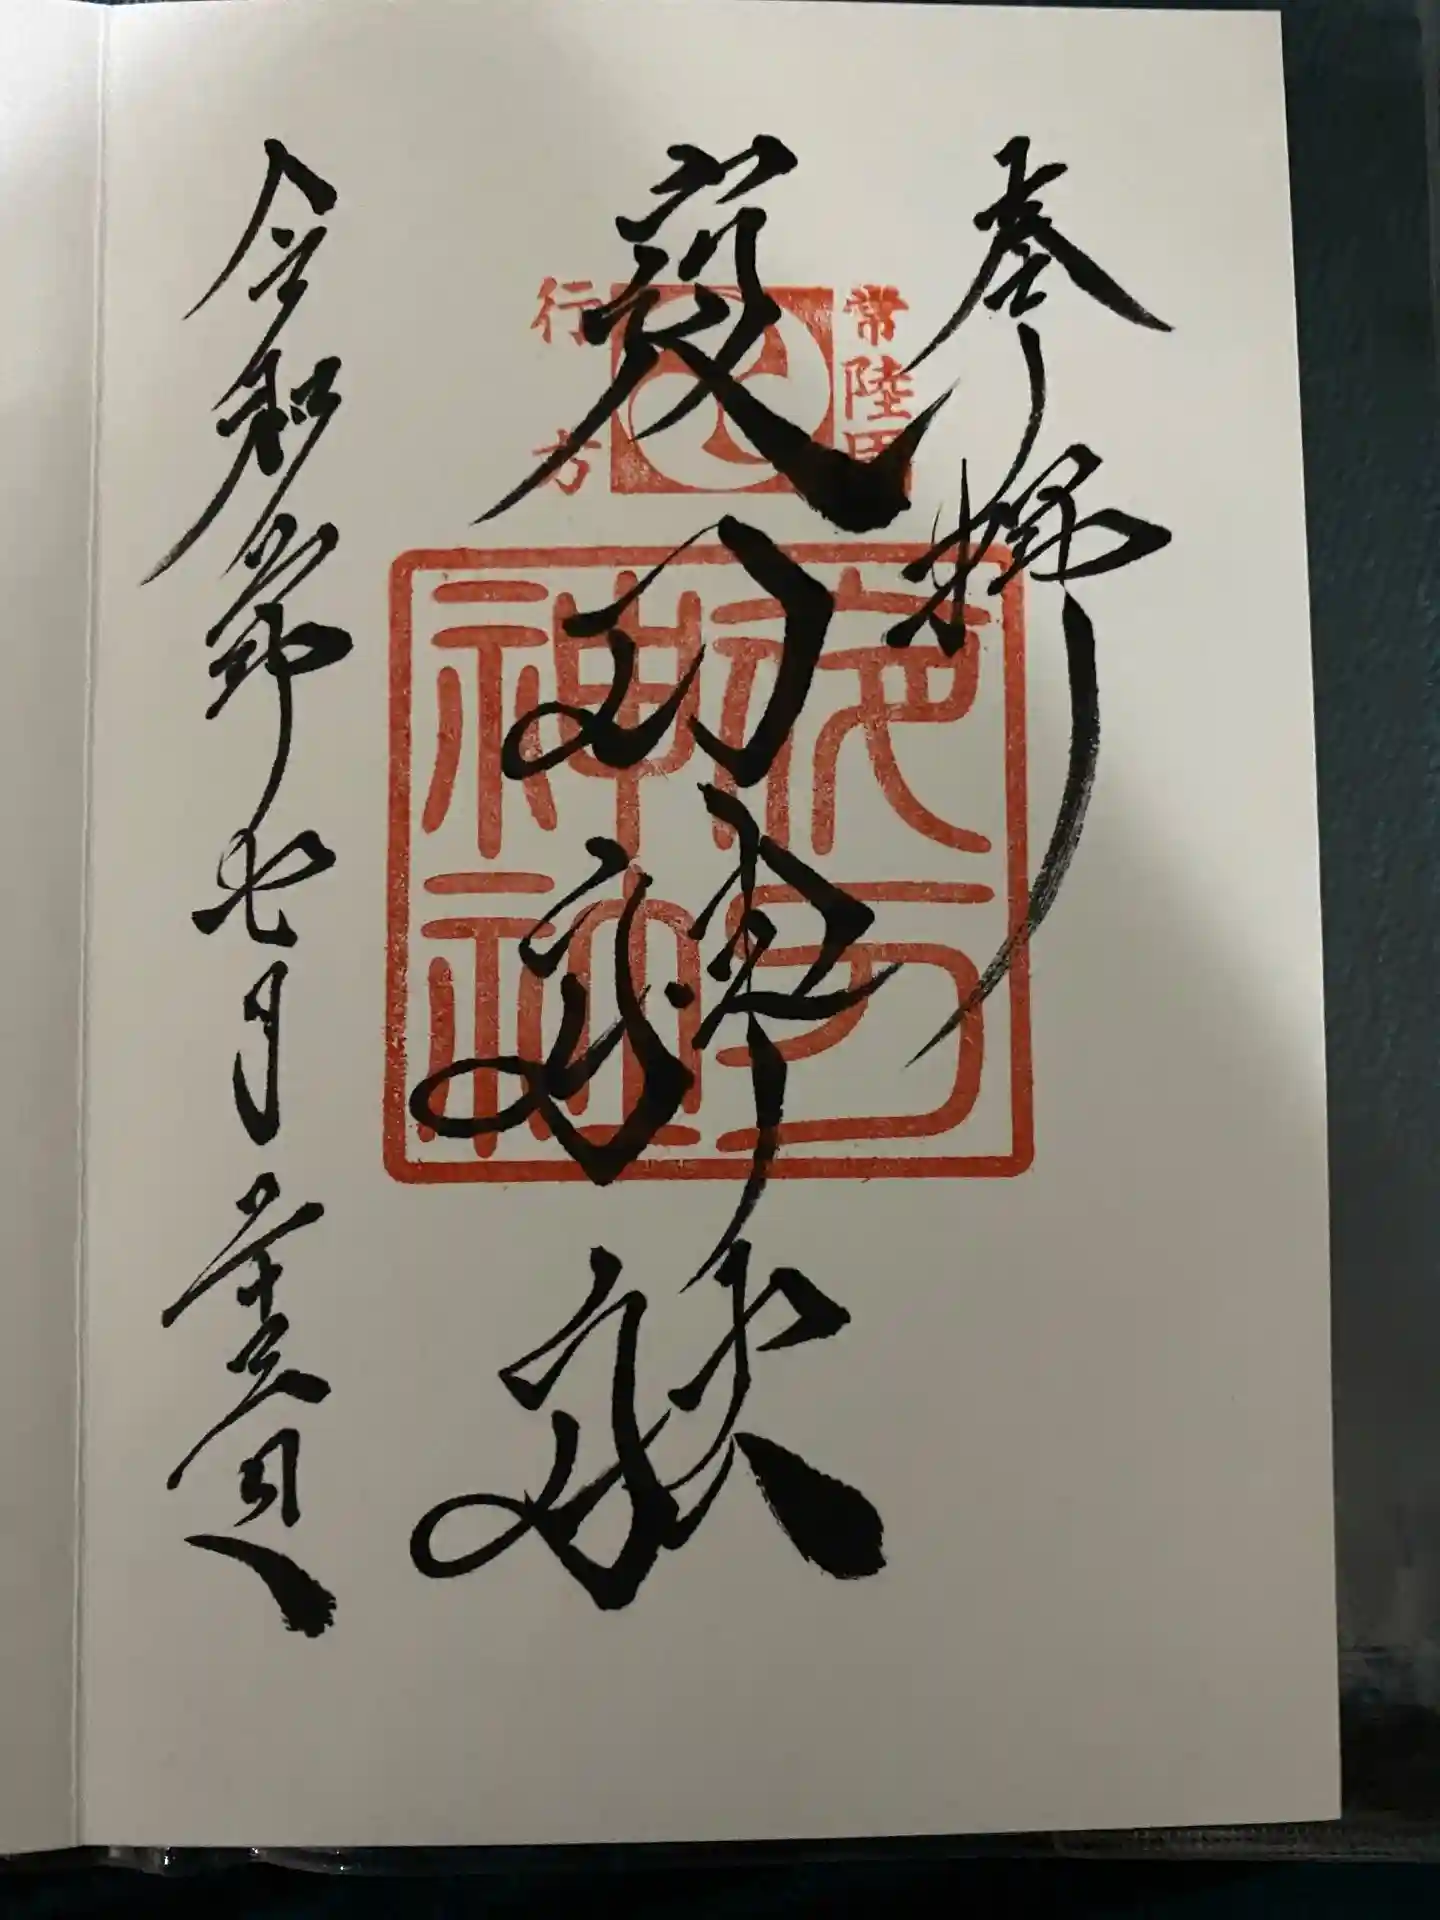 奉拝
常陸国
行方
夜刀神社
夜刀神社
令和 年七月 日